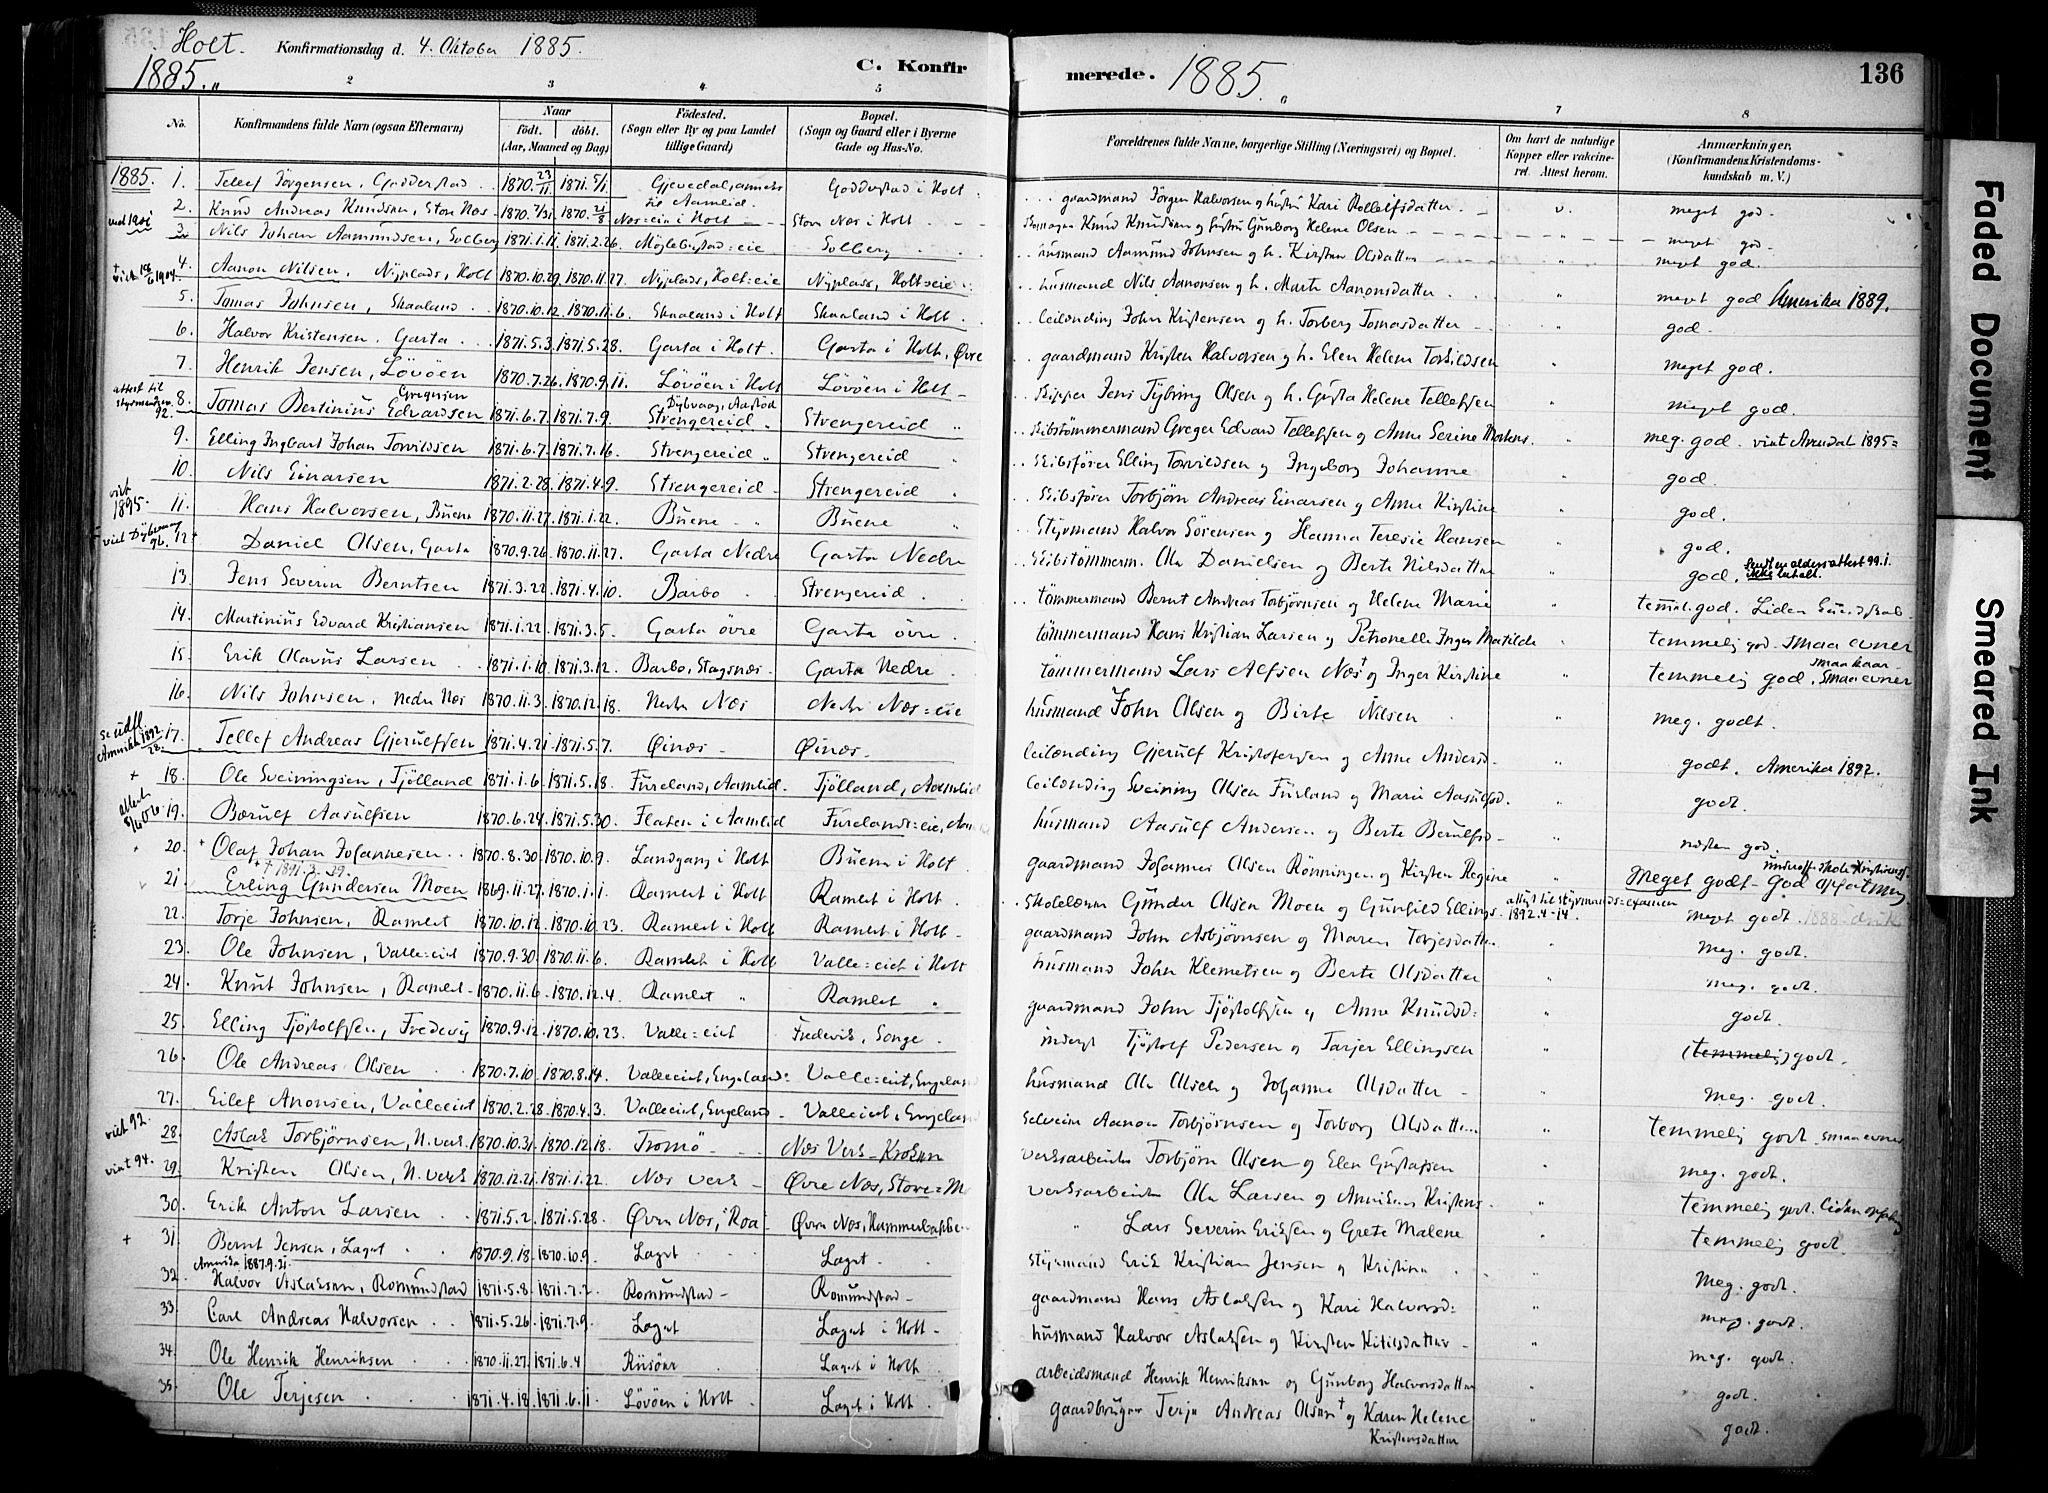 Holt. Konfirmationsdag d. 4. Oktober 1885.
1885. C. Konfirmerede. 1885. 136
2 3 4 5 6 7 8
No. Konfirmandens fulde Navn (ogsaa Efternavn) Naar født. døbt. (Aar, Maaned og Dag) Fødested. (Sogn eller By og paa Landet tillige Gaard) Bopæl. (Sogn og Gaard eller i Byerne Gade og Hus-No. Forældrenes fulde Navne, borgerlige Stilling (Næringsvei) og Bopæl. Om havt de naturlige Kopper eller vaccineret. Attest herom. Anmærkninger. (Konfirmandens Kristendomskundskab m. V.)
1885. 1. Tellef Jørgensen, Godderstad 1870. 23/11. 1871. 5/1. Gjevedal, anneks til Aamlid. Godderstad i Holt. gaardmand Jørgen Halvorsen og hustru Kari Rollelfsdatter v. meget god.
2. Knud Andreas Knudsen, Store Næs 1870. 7/31. 1870. 21/8 Næs=eie i Holt Store Næs i Holt Knud Knudsen og hustru Gunborg Helene Olsen " meget god.
3. Nils Johan Aamundsen, Solberg 1871.1.11. 1871.2.26. Møglebustad=eie Solberg husmand Aamund Johnsen og h. Kirsten Olsdatter " meget god.
4. Aanon Nilsen, Nyplads, Holt 1870.10.29 1870.11.27. Nyplads, Holt=eie Nyplads, Holt=eie husmand Nils Aanonsen og h. Marte Aanonsdatter " meget god Amerika 1889.
5. Tomas Johnsen, Skaaland 1870.10.12 1870.11.6. Skaaland i Holt Skaaland i Holt leilænding John Kristensen og h. Torberg Tomasdatter " god.
6. Halvor Kristensen, Garta 1871.5.3 1871.5.28. Garta i Holt. Garta i Holt, Øvre gaardmand Kristen Halvorsen og h. Elen Helene Torkildsen " meget god.
7. Henrik Jensen, Løvøen 1870.7.26. 1870.9.11. Løvøen i Holt Løvøen i Holt Skipper Jens Tybring Olsen og h. Gusta Helene Tellefsen " meget god.
8. Tomas Bertinius Gregersen Edvardsen 1871.6.7. 1871.7.9. Strengereid Strengereid Skibstømmermand Greger Edvard Tellefsen og Anne Serine Mortens. " meg. god. viet Arendal 1895
9. Elling Ingbart Johan Torvildsen 1871.6.7. 1871.7.16. Strengereid Strengereid Skibsfører Elling Torvildsen og Ingeborg Johanne god.
10. Nils Einarsen 1871.2.28. 1871.4.9. Strengereid Strengereid Skibsfører Torbjørn Andreas Einarsen og Anne Kirstine god.
viet 1895. 11. Hans Halvorsen, Buene 1870.11.27. 1871.1.22. Buene Buene Styrmand Halvor Sørensen og Hanna Teresie Hansen " god.
viet Dybvaag 96. 12. Daniel Olsen, Garta 1870.9.26. 1870.11.27. Garta Nedre Garta Nedre Skibstømmerm. Ole Danielsen og Berte Nilsdatter " god.
13. Jens Severin Berntsen 1871.3.22. 1871.4.10. Barbo Strengereid tømmermand Bernt Andreas Torbjørnsen og Helene Marie " temel. god. Liden Kundskab
14. Martinius Edvard Kristiansen 1871.1.22. 1871.3.5. Garta øvre Garta øvre tømmermand Hans Kristian Larsen og Petronelle Inger Matilde " temmelig god smaa evner
15. Erik Olavus Larsen 1871.1.10. 1871.3.12. Barbo, Stagsnæs Garta Nedre tømmermand Lars Alfsen Næs † og Inger Kirstine " temmelig god. smaa evner
16. Nils Johnsen, Nedre Næs 1870.11.3. 1870.12.18. Nedre Næs Nedre Næs=eie husmand John Olsen og Birte Nilsen meg. godt.
17. Tellef Andreas Gjerulfsen 1871.4.21. 1871.5.7. Øinæs Øinæs leilænding Gjerulf Kristofersen og Anne Andersd. " godt. Amerika 1892.
+ 18. Ole Sveiningsen, Tjølland 1871.1.6. 1871.5.18. Fureland, Aamlid. Tjølland, Aamlid leilænding Sveining Olsen Furland og Marie Aasulfsd. " godt.
19. Bærulf Aasulfsen 1870.6.24. 1871.5.30. Flaten i Aamlid Furelands=eie, Aamlid husmand Aasulf Andersen og Berte Berulfsd. " næsten god.
20. Olaf Johan Johannesen 1870.8.30. 1870.10.9. Landgang i Holt Buene i Holt gaardmand Johannes Olsen Rønningen og Kirsten Regine "
21. Erling Gundersen Moen 1869.11.27. 1870.1.1. Ramlet i Holt Ramlet i Holt Skolelærer Gunder Olsen Moen og Gunhild Ellings. attest til styrmands=examen 1892.4.14. Meget godt - God opfatning
22. Torje Johnsen, Ramlet 1870.10.12. 1870.10.23. Ramlet i Holt Ramlet i Holt gaardmand John Asbjørnsen og Maren Torjesdatter " meget godt.
23. Ole Johnsen, Valle=eiet 1870.9.30. 1870.11.6. Ramlet i Holt Valle=eiet i Holt husmand John Klemetsen og Berte Olsdatter " Meg. godt.
24. Knut Johnsen, Ramlet 1870.11.6. 1870.12.4. Ramlet " Ramlet " gaardmand John Tjøstolfsen og Anne Knudsd. " meg. godt.
25. Elling Tjøstolfsen, Fredevig 1870.9.12. 1870.10.23. Valle=eiet Frederik, Songe inderst Tjøstolf Pedersen og Tarjer Ellingsen " godt.
26. Ole Andreas Olsen 1870.7.10. 1870.8.14. Valleeiet, Engeland Valle=eiet, Engeland husmand Ole Olsen og Johanne Olsdatter " (temmelig) godt.
27. Eilef Anonsen, Valleeiet 1870.2.28. 1870.4.3. Valleeiet, Engeland Valleeiet, Engeland Selveier Aanon Torbjørnsen og Torborg Olsdatter " meg. godt.
viet 92. 28. Aslak Torbjørnsen, N. verk 1870.10.31. 1870.12.18. Tromø Næs Verk - Kroken Verksarbeider Torbjørn Olsen og Elen Gustafsen " temmelig godt. smaa evner
viet 94. 29. Kristen Olsen, N. verk 1870.12.21. 1871.1.22. Næs verk Øvre Næs, Verksarbeider Ole Larsen og Anniken Kristens. " meg. godt.
30. Erik Anton Larsen 1871.5.2. 1871.5.28. Øvre Næs, "Roa" Øvre Næs, Hammerbakken " Lars Severin Eriksen og Grete Malene " temmelig godt. liden opfatning
+ 31. Bernt Jensen, Laget 1870.9.18. 1870.10.9. Laget Laget Styrmand Erik Kristian Jensen og Kristine " temmelig godt.
Amerika 1887.9.21. 32. Halvor Aslaksen, Romundstad 1871.5.8. 1871.7.2. Romundstad Romundstad gaardmand Hans Aslaksen og Kari Halvorsd. " Meg. godt.
33. Carl Andreas Halvorsen 1871.5.26. 1871.7.9. Laget Laget i Holt husmand Halvor Aslaksen og Kirsten Kitilsdatter " meg. godt.
34. Ole Henrik Henriksen 1870.11.27. 1871.6.4. Riisøer Laget i Holt arbeidsmand Henrik Henriksen og Gunborg Halvorsdatter " meg. godt.
35. Ole Terjesen 1871.4.18. 1871.6.11. Løvøen i Holt Laget i Holt gaardbruger Terje Andreas Olsen † og Karen Helene " godt.
Kristensdatter godt.
Faded Document
Smeared Ink